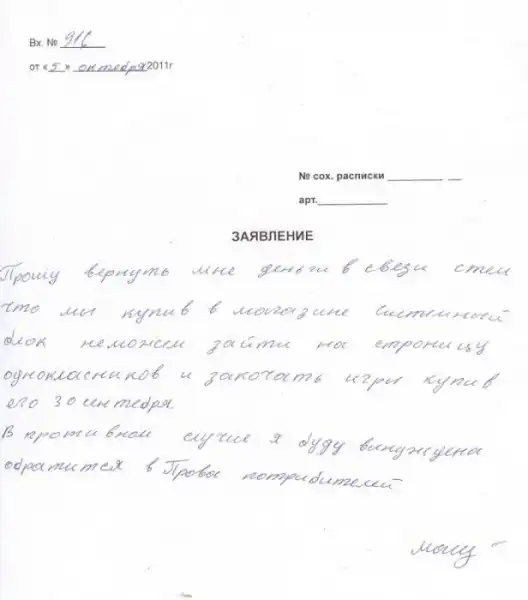 Вх. № 916
от «5» октября 2011г
№ сох. расписки
арт.
ЗАЯВЛЕНИЕ
Прошу вернуть мне деньги в свези стем
что мы купив в магазине Системный
блок неможем зайти на строницу
однокласников и закочать игры купив
его 30 сентебря.
В противном случие я буду вынуждена
обратится в Права потрибителей